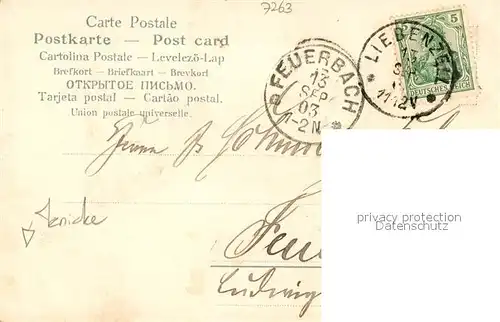 7263
Carte Postale
Postkarte — Post card
Cartolina Postale — Levelező-Lap
Brefkort — Briefkaart — Brevkort
ОТКРЫТОЕ ПИСЬМО.
Tarjeta postal — Cartão postal.
Union postale universelle.
FEUERBACH
13
SEP
03
2N
LIEBENZELL
13
SEP
11 12V
5
DEUTSCHES REICH
Herrn
privacy protection
Datenschutz
Feu
Ludwig